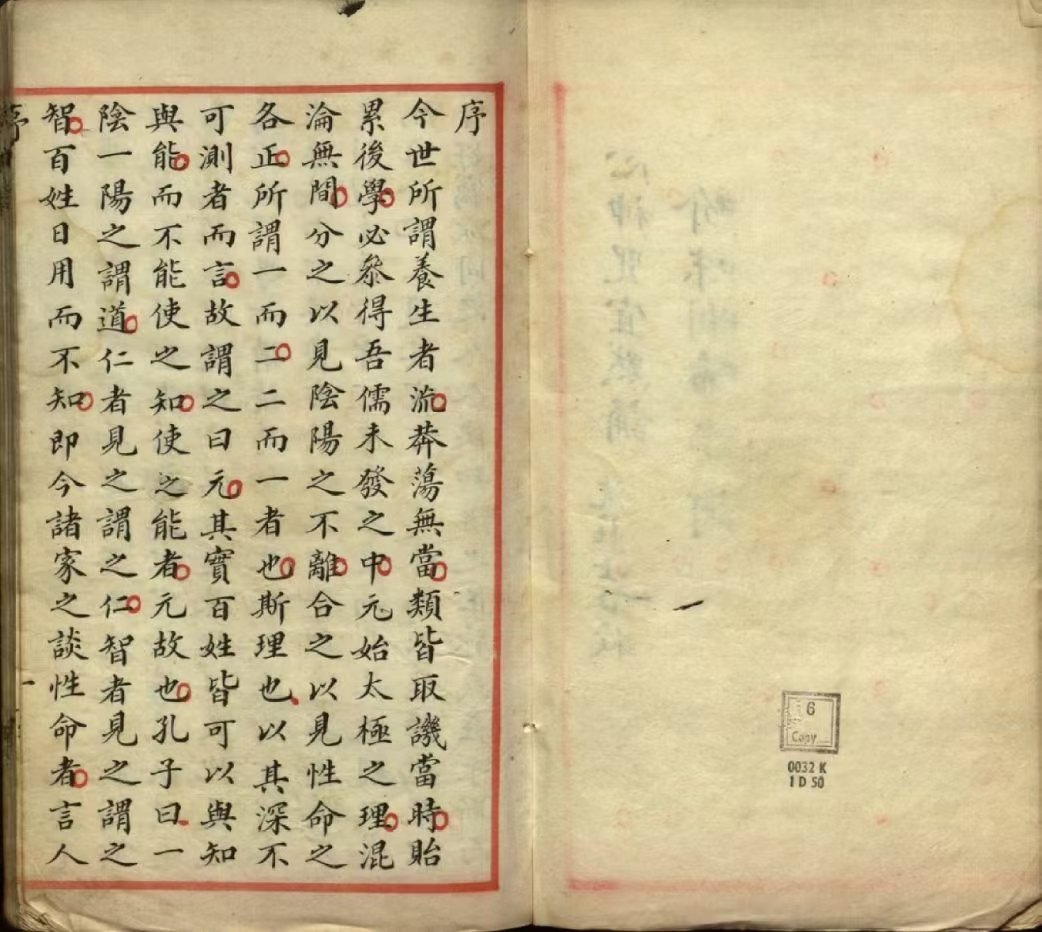 序
今世所謂養生者流莽蕩無當類皆取譏當時貽
累後學必叅得吾儒未發之中元始太極之理混
淪無間分之以見陰陽之不離合之以見性命之
各正所謂一而二二而一者也斯理也以其深不
可測者而言故謂之曰元其實百姓皆可以與知
與能而不能使之知使之能者元故也孔子曰一
陰一陽之謂道仁者見之謂之仁智者見之謂之
智百姓日用而不知即今諸家之談性命者言人
序
6
Copy
0032 K
1 D 50